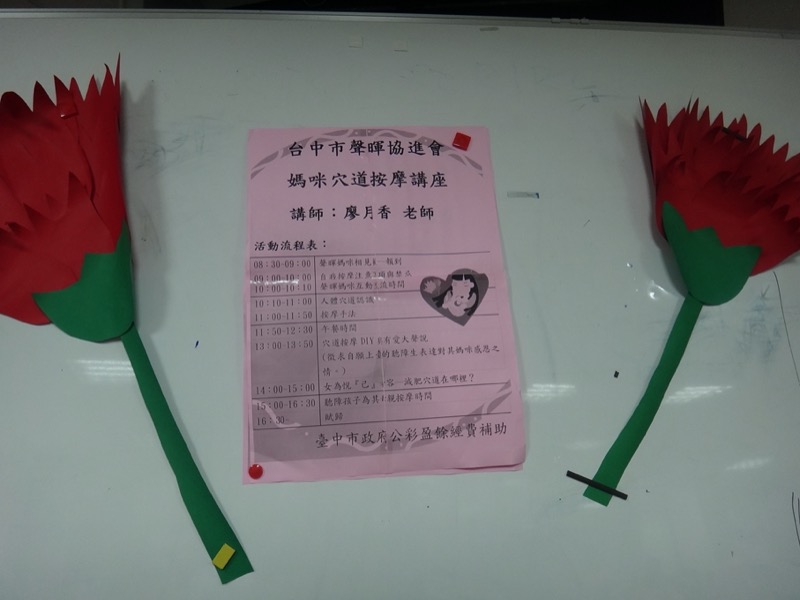 台中市聲暉協進會
媽咪穴道按摩講座
講師：廖月香 老師
活動流程表：
08：30-09：00 聲暉媽咪相見 報到
09：00-10：00 自麻按摩注意 項與禁忌
10：00-10：10 聲暉媽咪互動 流時間
10：10-11：00 人體穴道認識
11：00-11：50 按摩手法
11：50-12：30 午餐時間
13：00-13：50 穴道按摩 DIY 有愛大聲說
(徵求自願上臺的聽障生表達對其媽咪感恩之
情。)
14：00-15：00 女為悅「己」 容—減肥穴道在哪裡？
15：00-16：30 聽障孩子為其 親按摩時間
16：30- 賦歸
臺中市政府公彩盈餘經費補助